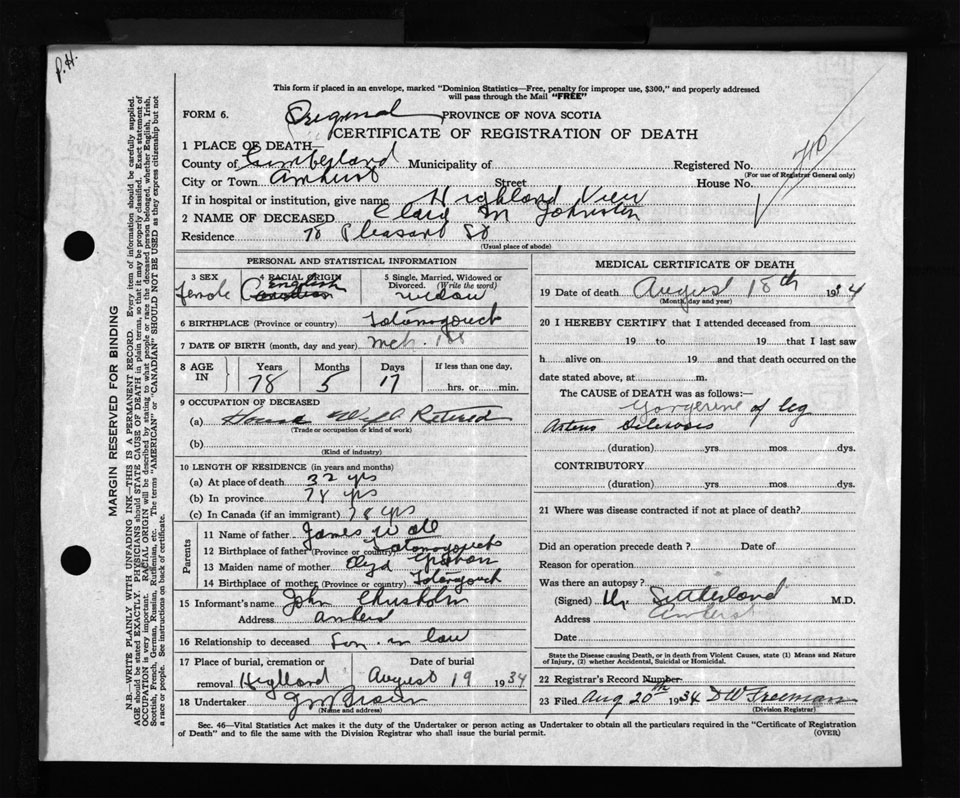 P.H.
This form if placed in an envelope, marked "Dominion Statistics—Free, penalty for improper use, $300," and properly addressed
will pass through the Mail "FREE"
FORM 6.
PROVINCE OF NOVA SCOTIA
CERTIFICATE OF REGISTRATION OF DEATH
1 PLACE OF DEATH—
County of Cumberland Municipality of Registered No. 710
(For use of Registrar General only)
City or Town Amherst Street House No.
If in hospital or institution, give name Highland View
2 NAME OF DECEASED M Johnston
Residence 78 Pleasant St
(Usual place of abode)
PERSONAL AND STATISTICAL INFORMATION
3 SEX 4 RACIAL ORIGIN 5 Single, Married, Widowed or
Divorced. (Write the word)
Female English widow
Canadian
6 BIRTHPLACE (Province or country)
7 DATE OF BIRTH (month, day and year) Mch. 18
8 AGE IN Years Months Days If less than one day,
78 5 17 hrs. or min.
9 OCCUPATION OF DECEASED
(a) House Wife Retired
(Trade or occupation or kind of work)
(b)
(Kind of industry)
10 LENGTH OF RESIDENCE (in years and months)
(a) At place of death 32 yrs
(b) In province 78 yrs
(c) In Canada (if an immigrant) 78 yrs
Parents
11 Name of father James
12 Birthplace of father (Province or country)
13 Maiden name of mother
14 Birthplace of mother (Province or country)
15 Informant's name John Chisholm
Address
16 Relationship to deceased Son-in law
17 Place of burial, cremation or Date of burial
removal Highland August 19 1934
18 Undertaker
(Name and address)
MEDICAL CERTIFICATE OF DEATH
19 Date of death August 18th 1934
(Month, day and year)
20 I HEREBY CERTIFY that I attended deceased from
19 to 19 that I last saw
h alive on 19 and that death occurred on the
date stated above, at m.
The CAUSE of DEATH was as follows:—
of leg
(duration) yrs mos dys.
CONTRIBUTORY
(duration) yrs mos dys.
21 Where was disease contracted if not at place of death?
Did an operation precede death? Date of
Reason for operation
Was there an autopsy?
(Signed) Sutherland M.D.
Address
Date
State the Disease causing Death, or in death from Violent Causes, state (1) Means and Nature
of Injury, (2) whether Accidental, Suicidal or Homicidal.
22 Registrar's Record Number
23 Filed Aug 20th 1934 D W Freeman
(Division Registrar)
Sec. 46—Vital Statistics Act makes it the duty of the Undertaker or person acting as Undertaker to obtain all the particulars required in the "Certificate of Registration
of Death" and to file the same with the Division Registrar who shall issue the burial permit. (OVER)
MARGIN RESERVED FOR BINDING
N.B.—WRITE PLAINLY WITH UNFADING INK—THIS IS A PERMANENT RECORD. Every item of information should be carefully supplied.
AGE should be stated EXACTLY. PHYSICIANS should STATE CAUSE OF DEATH in plain terms, so that it may be properly classified. Exact statement of
OCCUPATION is very important. RACIAL ORIGIN will be described by stating to what people or race the deceased person belonged, whether English, Irish,
Scottish, French, German, Russian, Ruthenian, etc. The terms "AMERICAN" or "CANADIAN" SHOULD NOT BE USED as they express citizenship but not
a race or people. See instructions on back of certificate.